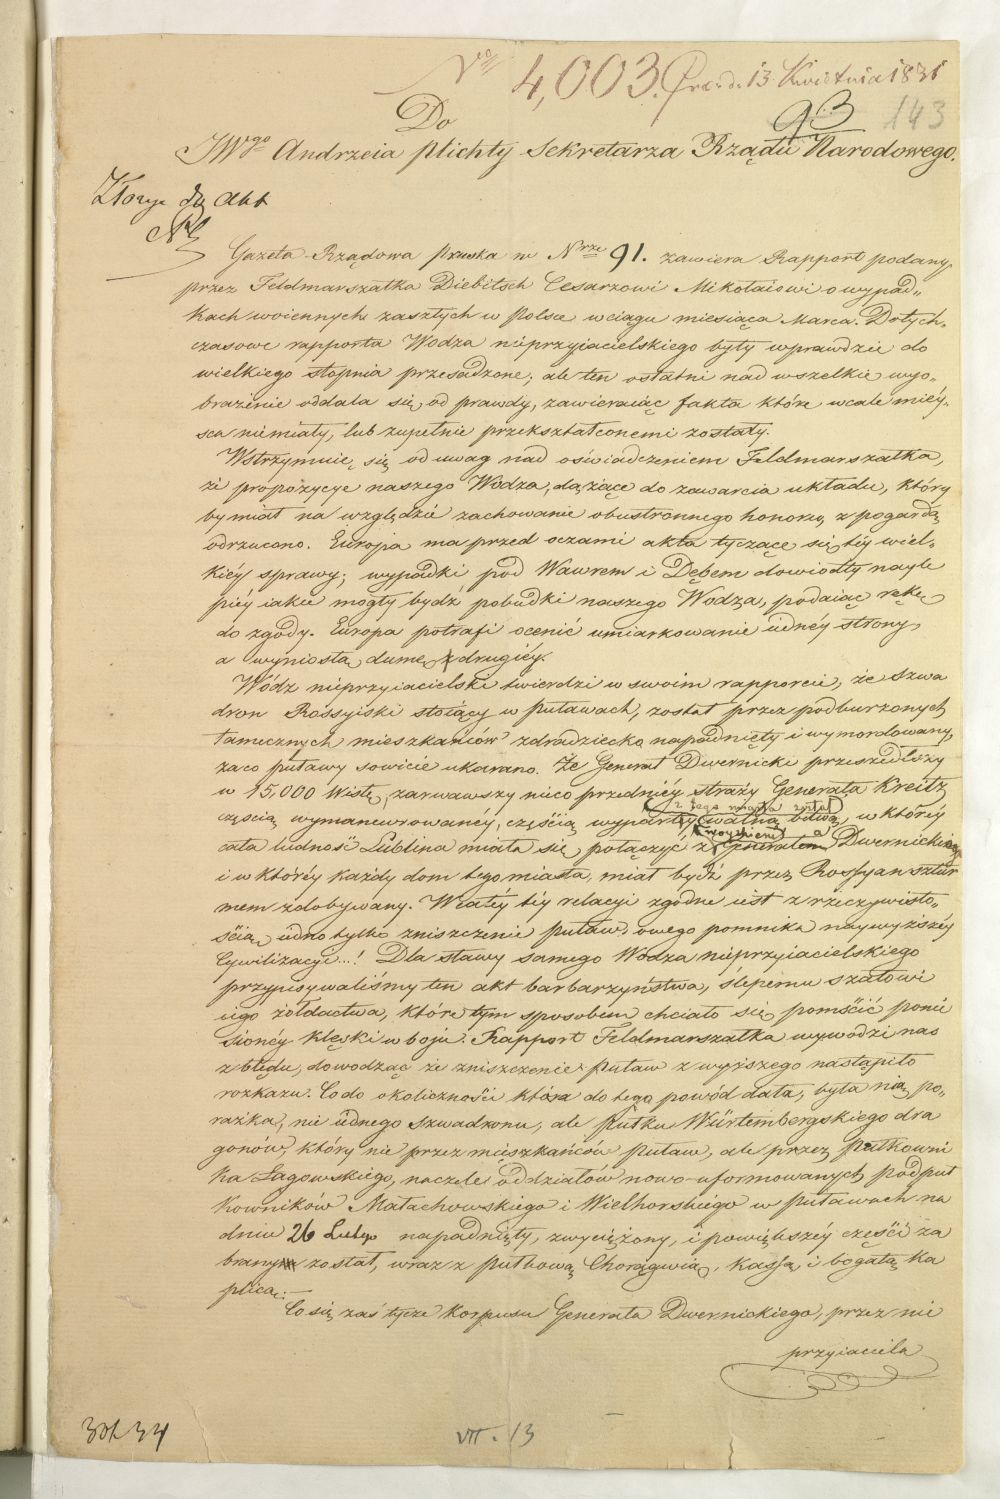 Nro 4,003. Prae. d. 13 Kwietnia 1831
93 143
Do
JWgo Andrzeia Plichty Sekretarza Rządu Narodowego.
Złożyć do Akt
Gazeta Rządowa Pruska w Nrze 91. zawiera Rapport podany
przez Feldmarszałka Diebitsch Cesarzowi Mikołaiowi o wypad„
kach woiennych zaszłych w Polsce w ciągu miesiąca Marca. Dotych„
czasowe rapporta Wodza nieprzyiacielskiego były wprawdzie do
wielkiego stopnia przesadzone; ale ten ostatni nad wszelkie wyo„
brażenie oddala się od prawdy, zawieraiąc fakta które wcale miéy„
sca niemiały, lub zupełnie przekształconemi zostały.
Wstrzymuię się od uwag nad oświadczeniem Feldmarszałka,
że propozycye naszego Wodza, dążące do zawarcia układu, który
by miał na względzie zachowanie obustronnego honoru, z pogardą
odrzucono. Europa ma przed oczami akta tyczące się téy wiel„
kiéy sprawy; wypadki pod Wawrem i Dębem dowiodły nayle
piéy iakie mogły bydź pobudki naszego Wodza, podaiąc rękę
do zgody. Europa potrafi ocenić umiarkowanie iednéy strony,
a wyniosłą dumę drugiéy.
Wódz nieprzyiacielski twierdzi w swoim rapporcie, że szwa
dron Rossyiski stoiący w Puławach, został przez podburzonych
tamecznych mieszkańców zdradziecko napadnięty i wymordowany,
za co Puławy sowicie ukarano. Że Generał Dwernicki przeszedłszy
w 15,000 Wisłę, zarwawszy nieco przedniéy straży Generała Kreitz
z tego miasta został
częścią wymanewrowanéy, częścią wyparty walną bitwą, w któréy
woyskiem a
cała ludność Lublina miała się połączyć z Generałem Dwernickiego
i w któréy każdy dom tego miasta, miał bydź przez Rossyan sztur
mem zdobywany. W całéy téy relacyi zgodne iest z rzeczywisto„
ścią iedno tylko zniszczenie Puław, owego pomnika naywyższéy
Cywilizacyi...! Dla sławy samego Wodza nieprzyiacielskiego
przypisywaliśmy ten akt barbarzyństwa, ślepemu szałowi
iego żołdactwa, które tym sposobem chciało się pomścić ponie
sionéy klęski w boju. Rapport Feldmarszałka wywodzi nas
z błędu, dowodząc że zniszczenie Puław z wyższego nastąpiło
rozkazu. Co do okoliczności która do tego powód dała, była nią po„
rażka, nie iednego szwadronu, ale Pułku Würtembergskiego dra
gonów, który nie przez mieszkańców Puław, ale przez Pułkowni
ka Łagowskiego, na czele oddziałów nowo-uformowanych Podpuł
kowników Małachowskiego i Wielhorskiego w Puławach na
dniu 26 Lutego napadnięty, zwyciężony, i powiększéy części za
brany został, wraz z Pułkową Chorągwią, Kassą i bogatą Ka
plicą.
Co się zaś tycze Korpusu Generała Dwernickiego, przez nie
przyiaciela
VII. 13